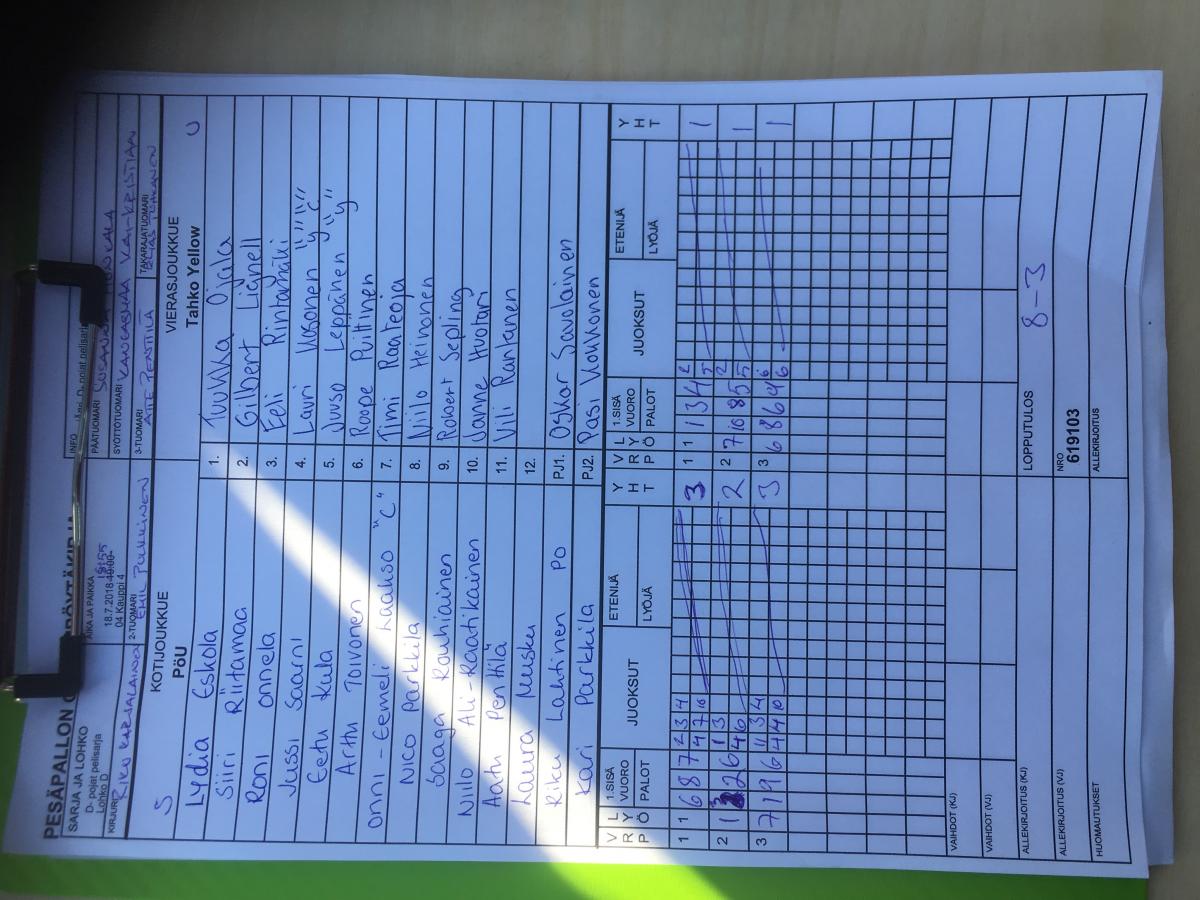 PESÄPALLON
SARJA JA LOHKO
D- pojat pelisarja
Lohko D
AIKA JA PAIKKA
18.7.2018 10:00
04 Kauppi 4
INFO
D- pojat pelisarja
PÄÄTUOMARI SUSANNA
SYÖTTÖTUOMARI KANGASMAA KAI-KRISTIAN
KIRJURI RIKU KARJALAINEN
2-TUOMARI EMIL PULKKINEN
3-TUOMARI ATTE PENTTILÄ
TAKARAJATUOMARI
S
KOTIJOUKKUE
PöU
VIERASJOUKKUE
Tahko Yellow
U
Lydia Eskola 1. Tuukka Ojala
Siiri Riitamaa 2. Gilbert Lignell
Roni Onnela 3. Eeli Rintamäki
Jussi Saarni 4. Lauri Vuosonen
Eetu Kula 5. Juuso Leppänen "C"
Arttu Toivonen 6. Roope Puittinen
Onni-Eemeli Laakso "C" 7. Timi Raateoja
Nico Parkkila 8. Niilo Heinonen
Saaga Rouhiainen 9. Robert Sepling
Niilo Ali-Raatikainen 10. Janne Huotari
Aatu Penttilä 11. Vili Rantanen
Laura Musku 12.
Riku Lahtinen PO PJ1. Oskar Savolainen
Kari Parkkila PJ2. Pasi Voukkonen
V R P L Y Ö 1.SISÄ VUORO PALOT JUOKSUT ETENIJÄ LYÖJÄ Y H T V R P L Y Ö 1.SISÄ VUORO PALOT JUOKSUT ETENIJÄ LYÖJÄ Y H T
1 1 6 8 7 2 3 4 4 7 10 3 1 1 1 3 4 2 5 1
2 1 2 6 1 3 4 6 2 2 7 10 8 5 2 5 1
3 7 1 9 6 1 3 4 4 4 10 3 3 6 8 6 4 6 6 1
VAIHDOT (KJ)
VAIHDOT (VJ)
ALLEKIRJOITUS (KJ)
LOPPUTULOS 8-3
ALLEKIRJOITUS (VJ)
NRO
619103
HUOMAUTUKSET
ALLEKIRJOITUS